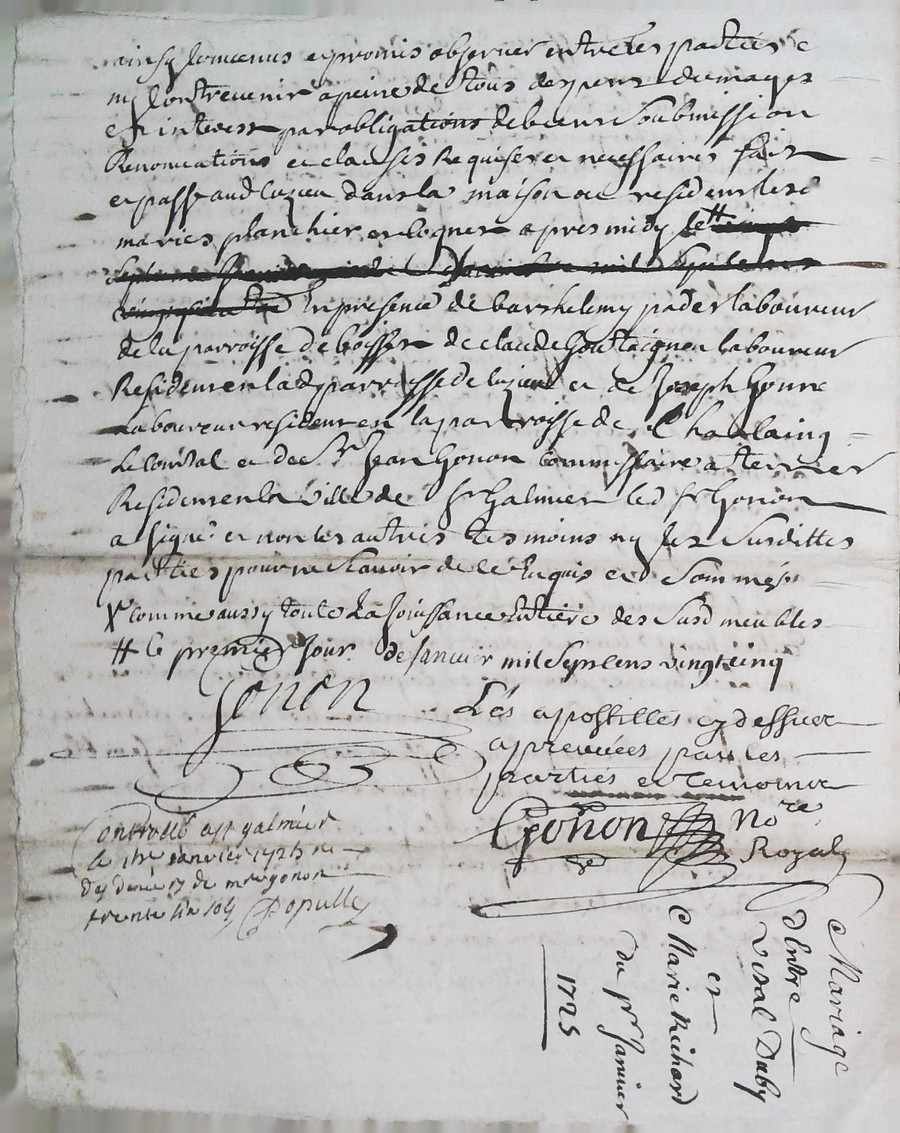 ainsy convenus et promis observer entre les parties e
ny contrevenir a peine de tous despens dumages
et interest par obligations de biens soubmission
Renonciations et clauses Requises et necessaires fait
et passé aud luzieu dans la maison de residence
maries planchier et logner apres midy
En presence de barthelemy pader laboureur
de la parroisse de boisset de claude goutaignon laboureur
Resident en lad parroisse de luzieu et de Joseph gonne
laboureur resident en la parroisse de Chaulaing
le comtal et de Sr Jean Gonon commissaire a terrier
Resident en la ville de st Galmier led sr Gonon
a signé et non les autres tesmoins ny les susdittes
parties pour ne scavoir de ce Enquis et sommés
X comme aussy toute La Jouissance Entiere des susd meubles
# le premier Jour de Janvier mil sept cens vingt cinq
Gonon
Les apostilles cy dessus
apreuvées par les
parties et temoins
Gonon Nore
Royal
Controllé a st galmier
le janvier 1725 R
de me gonon
trente cin sols Populle
Mariage
d'Entre
Vidal Duby
et
Marie Richard
du pr Janvier
1725